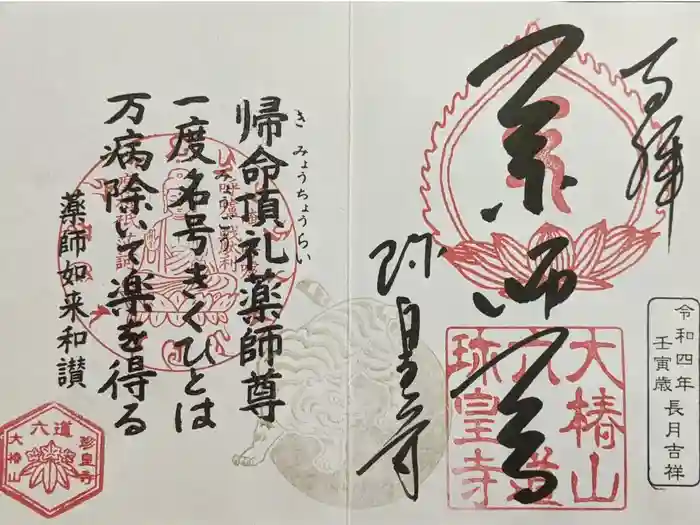 奉拝
薬師尊
珍皇寺
大椿山
六道
珍皇寺
令和四年長月吉祥
壬寅歳
帰命頂礼薬師尊
きみょうちょうらい
一度名号きくひとは
みょうごう
万病除いて楽を得る
薬師如来和讃
六道
珍皇寺
大椿山